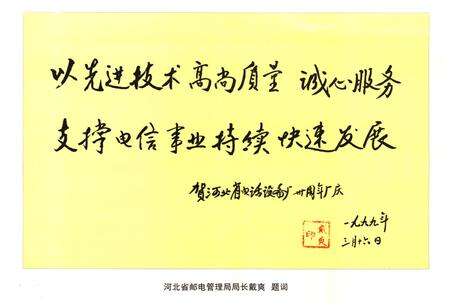 以先进技术高尚质量 诚心服务
支撑电信事业持续快速发展
贺河北省电话设备厂卅周年厂庆
一九九九年
三月十六日
戴爽印
河北省邮电管理局局长戴爽 题词